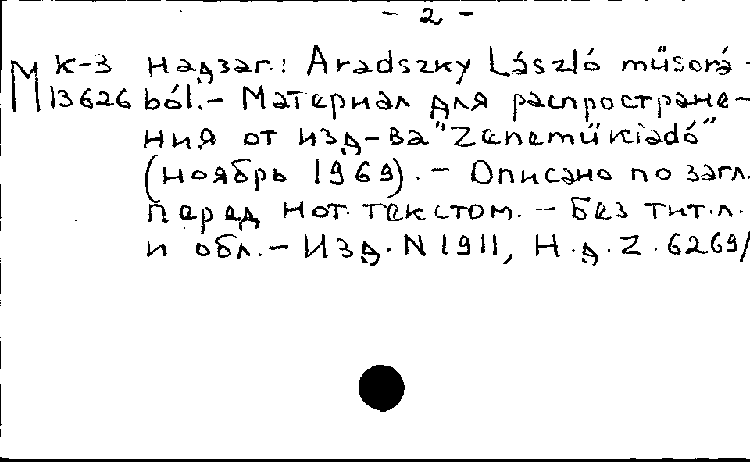 - 2 -
М К-3 Надзаг.: Aradszky László műsorá-
13626 ból.- Материал для распростране-
ния от изд-ва "Zeneműkiadó"
(ноябрь 1969). - Описано по загл.
перед нот. текстом. - Без тит.л.
и обл. - Изд. N 1911, Н.д. Z. 6269/